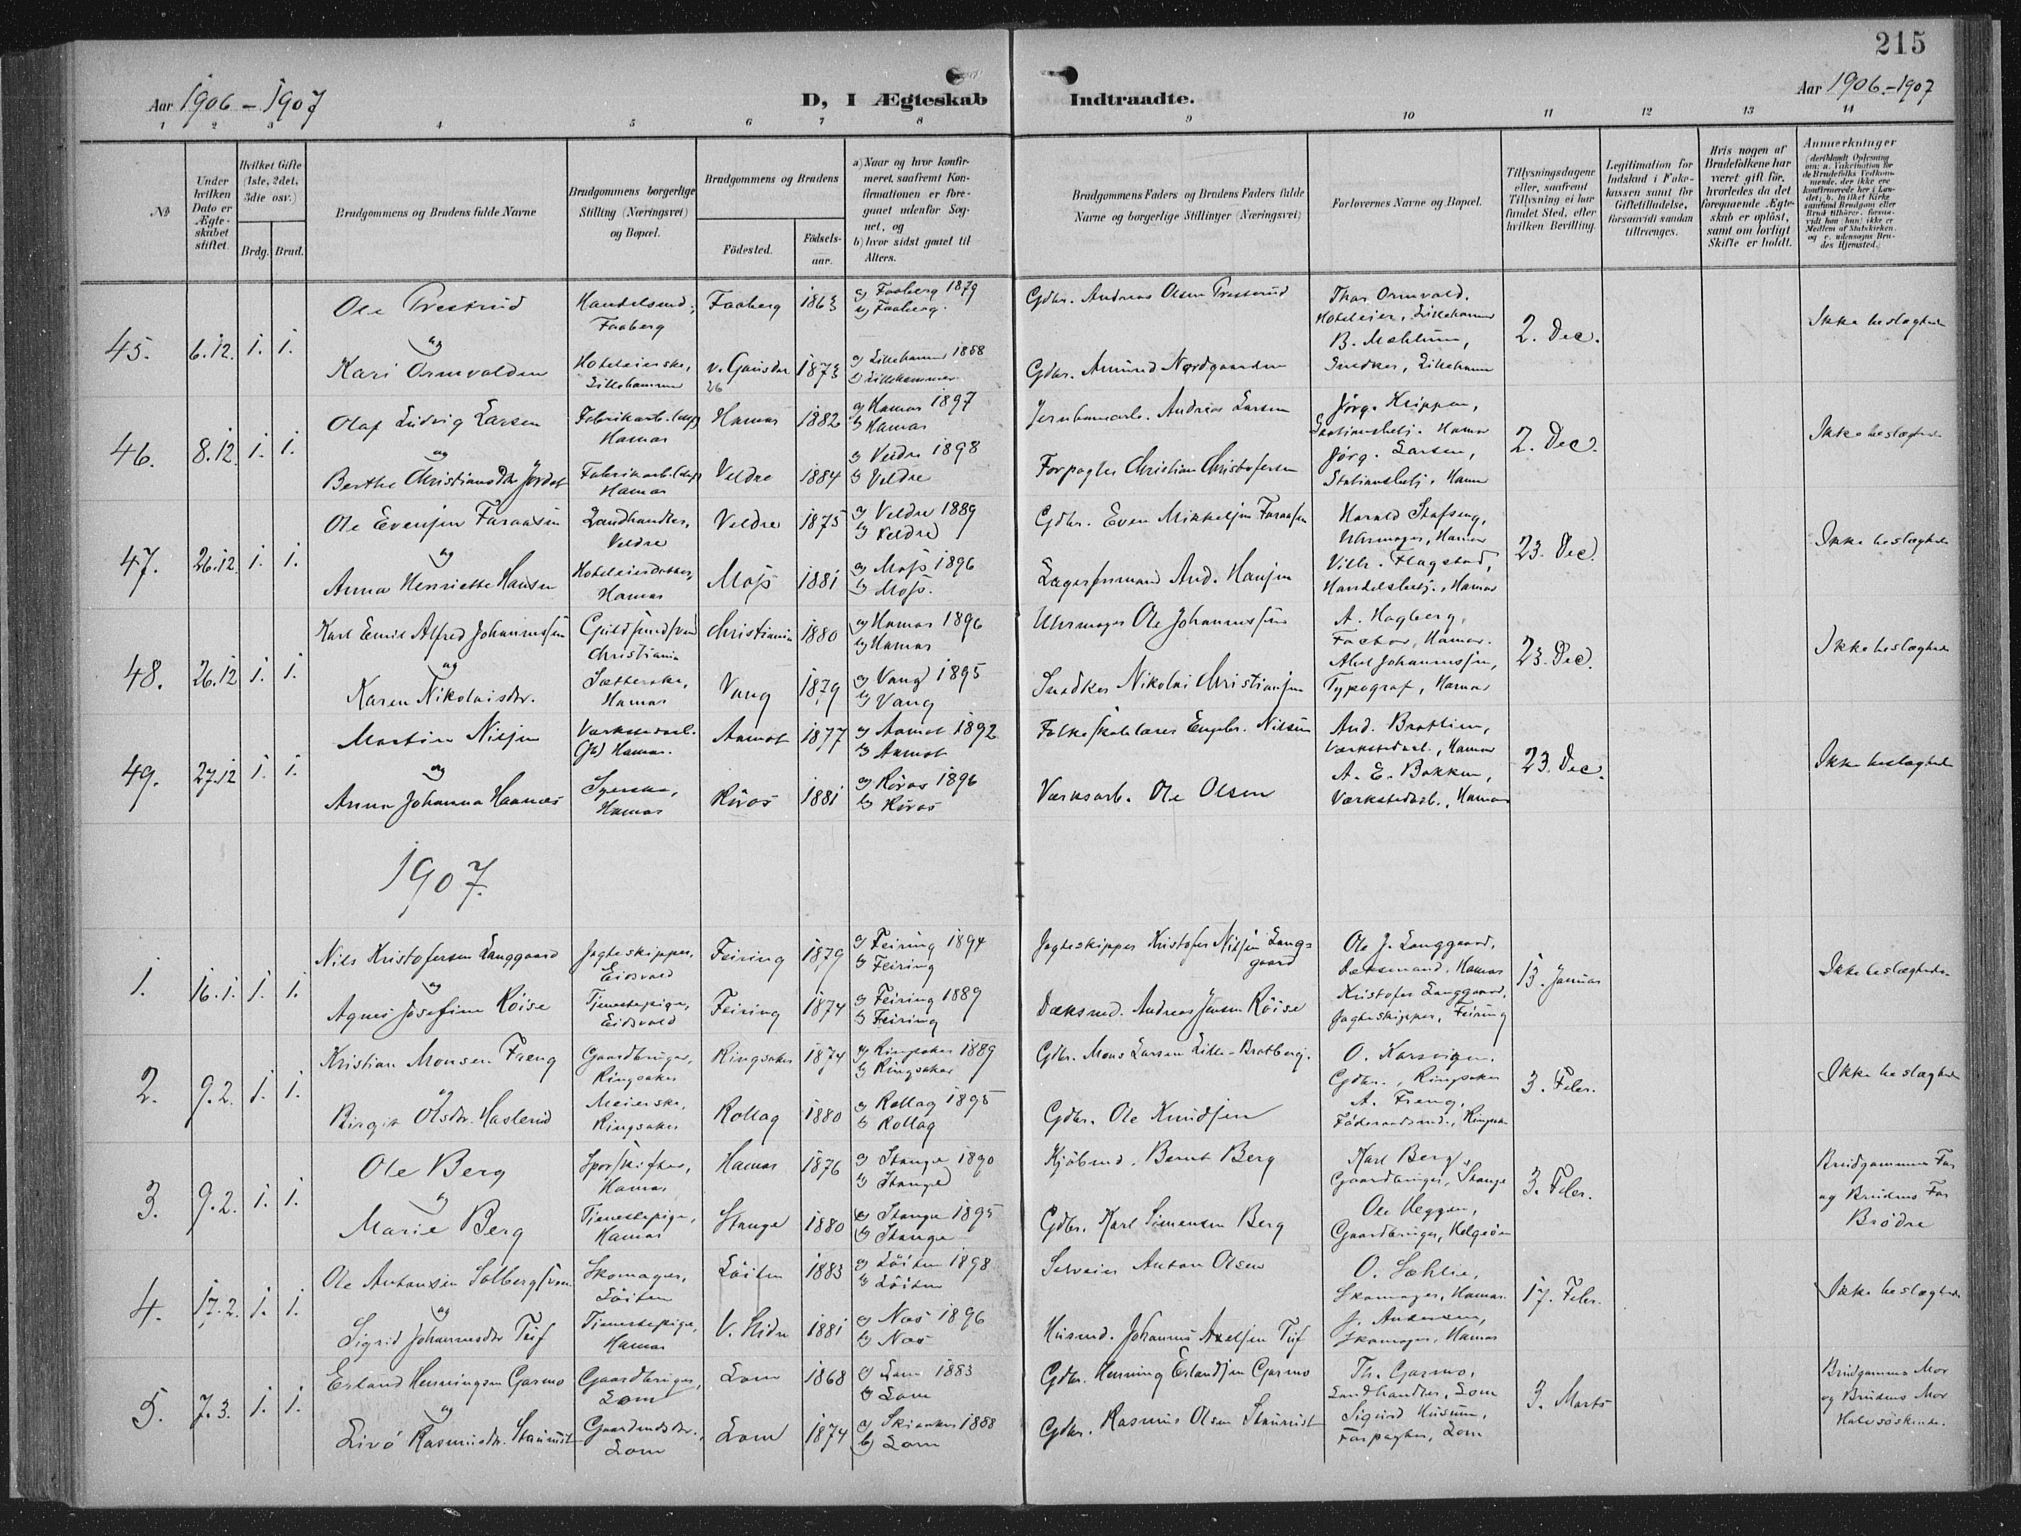 215
Aar 1906 – 1907
D, I Ægteskab Indtraadte.
Aar 1906.–1907
1 2 3 4 5 6 7 8 9 10 11 12 13 14
No
Under hvilken Dato er Ægteskabet stiftet.
Hvilket Gifte (1ste, 2det, 3die osv.)
Brdg. Brud.
Brudgommens og Brudens fulde Navne
Brudgommens borgerlige Stilling (Næringsvei) og Bopæl.
Brudgommens og Brudens
Födested. Födsels-aar.
a) Naar og hvor konfirmeret, saafremt Konfirmationen er foregaaet udenfor Sognet, og
b) hvor sidst gaaet til Alters.
Brudgommens Faders og Brudens Faders fulde Navne og borgerlige Stillinger (Næringsvei)
Forlovernes Navne og Bopæl.
Tillysningsdagene eller, saafremt Tillysning ei har fundet Sted, efter hvilken Bevilling.
Legitimation for Indskud i Enkekassen samt for Giftetilladelse, forsaavidt saadan tiltrænges.
Hvis nogen af Brudefolkene har været gift för, hvorledes da det foregaaende Ægteskab er oplöst, samt om lovligt Skifte er holdt.
Anmerkninger
45. 6.12. 1. 1.
Ole Prestrud Faaberg 1863 a) Faaberg 1879 b) Faaberg.
Gdbr. Andreas Olsen Presterud
Thor Ormvold, Hoteleier, Lillehammer
B. Mæhlum, Snedker, Lillehammer
2. Dec.
Ikke beslægtede
og
Kari Ormvolden Hoteleierske, Lillehammer 1873 b) Lillehammer
Gdbr. Amund Nordgaarden
46. 8.12. 1. 1.
Olaf Ludvig Larsen Hamar Hamar 1882 a) Hamar 1897 b) Hamar
Jernbanearb. Andreas Larsen
Jörg. Krippen, Stationsbetj. Hamar
Jörg. Larsen, Stationsbetj. Hamar
2. Dec.
Ikke beslægtede
og
Berthe Christiansdtr Jordet Hamar Veldre 1884 a) Veldre 1898 b) Veldre
Forpagter Christian Christofersen
47. 26.12. 1. 1.
Ole Evensen Faraasen Landhandler, Veldre Veldre 1875 a) Veldre 1889 b) Veldre
Gdbr. Even Mikkelsen Faraasen
Harald Stafseng, Uhrmager, Hamar
Vilh. Flagstad, Handelsbetj., Hamar
23. Dec.
Ikke beslægtede
og
Anna Henriette Hansen Hoteleierdatter, Hamar Moss 1881 a) Moss 1896 b) Moss.
Lagerformand And. Hansen
48. 26.12 1. 1.
Karl Emil Alfred Johannessen Guldsmedsvend Christiania Christiania 1880 a) Hamar 1896 b) Hamar
Uhrmager Ole Johannessen
A. Hagberg, Factor, Hamar.
Axel Johannessen, Typograf, Hamar
23. Dec.
Ikke beslægtede
og
Karen Nikolaisdr. Sætterske, Hamar Vang 1879 a) Vang 1895 b) Vang
Snedker Nikolai Christiansen
49. 27.12 1. 1.
Martin Nilsen Værkstedarb. Hamar. Aamot 1877 a) Aamot 1892 b) Aamot
Folkeskolelærer Engebr. Nilsen
And. Bratlien, Værkstedarb., Hamar
A. E. Bakken, Værkstedarb., Hamar
23. Dec.
Ikke beslægtede
og
Anna Johanna Haanæs Syerske, Hamar Röros 1881 a) Röros 1896 b) Röros
Værksarb. Ole Olsen
1907.
1. 16.1. 1. 1.
Nils Kristofersen Langgaard Jagteskipper, Eidsvold Feiring 1879 a) Feiring 1894 b) Feiring
Jagteskipper Kristofer Nilsen Langgaard
Ole J. Langgaard, Dæksmand, Hamar
Kristofer Langgaard, Jagteskipper, Feiring
13. Januar
Ikke beslægtede
og
Agnes Josefine Röise Tjenestepige, Eidsvold Feiring 1874 a) Feiring 1889 b) Feiring
Dæksmd. Andreas Jensen Röise
2. 9.2. 1. 1.
Kristian Monsen Freng Gaardbruger, Ringsaker Ringsaker 1874 a) Ringsaker 1889 b) Ringsaker
Gdbr. Mons Larsen Lille-Bratberg.
O. Karsvigen. Gdbr., Ringsaker
A. Freng, Föderaadsmd., Ringsaker
3. Febr.
Ikke beslægtede
og
Birgit Olsdtr. Haslerud Meierske, Ringsaker Rollag 1880 a) Rollag 1895 b) Rollag
Gdbr. Ole Knudsen
3. 9.2. 1. 1.
Ole Berg Sporskifter, Hamar Hamar 1876 a) Stange 1890 b) Stange
Kjöbmd. Bernt Berg
Karl Berg, Gaardbruger, Stange
Ole Heggen, Gaardbruger, Helgöen
3. Febr.
Brudgommens Far og Brudens Far Brödre
og
Marie Berg Tjenestepige, Hamar Stange 1880 a) Stange 1895 b) Stange
Gdbr. Karl Simensen Berg
4. 17.2. 1. 1.
Ole Antonsen Solbergsveen Skomager, Löiten Löiten 1883 a) Löiten 1898 b) Löiten
Selveier Anton Olsen
O. Sæhlie, Skomager, Hamar
J. Andersen, Skomager, Hamar
17. Febr.
Ikke beslægtede
og
Sigrid Johannesdtr Tuf Tjenestepige, Hamar V. Slidre 1881 a) Næs 1896 b) Næs
Husmd. Johannes Axelsen Tuf
5. 7.3. 1. 1.
Erland Henningsen Garmo Gaardbruger, Lom Lom 1868 a) Lom 1883 b) Lom
Gdbr. Henning Erlandsen Garmo
Th. Garmo, Landhandler, Lom
Sigurd Husum, Forpagter, Lom
3. Marts
Brudgommens Mor og Brudens Mor Halvsöskende.
og
Livö Rasmusdtr. Staurust Gaardmdsdtr., Lom Lom 1874 a) Skiaaker 1888 b) Lom
Gdbr. Rasmus Olsen Staurust